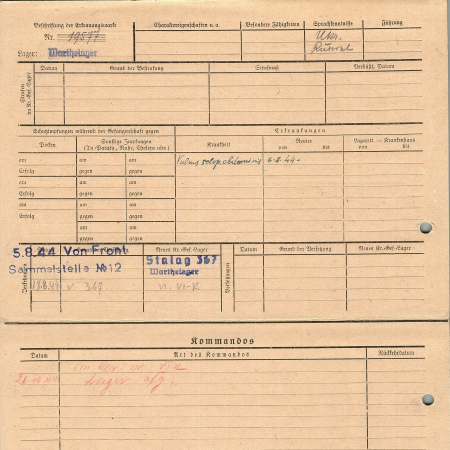 Beschriftung der Erkennungsmarke
Nr. 19577
Lager: Warthelager
Charaktereigenschaften u. a.
Besondere Fähigkeiten
Sprachkenntnisse
Ukr.
Führung
Strafen im Kr.-Gef.-Lager
Datum
Grund der Bestrafung
Strafmaß
Verbüßt, Datum
Schutzimpfungen während der Gefangenschaft gegen
Erkrankungen
Pocken
Sonstige Impfungen
(Ty.-Paratu., Ruhr, Cholera usw.)
Krankheit
Revier
von bis
Lazarett – Krankenhaus
von bis
am am am
Vulnus abdominis 6.8.44-
Erfolg gegen gegen
am am am
Erfolg gegen gegen
am am am
Erfolg gegen gegen
am am
gegen gegen
am am
gegen gegen
5.8.44 Von Front
Sammelstelle №12
Versetzungen
18.8.44 v. 367
Neues Kr.-Gef.-Lager
Stalag 367
Warthelager
n. VI-K
Versetzungen
Datum
Grund der Versetzung
Neues Kr.-Gef.-Lager
Kommandos
Datum
Art des Kommandos
Rückkehrdatum
Lager